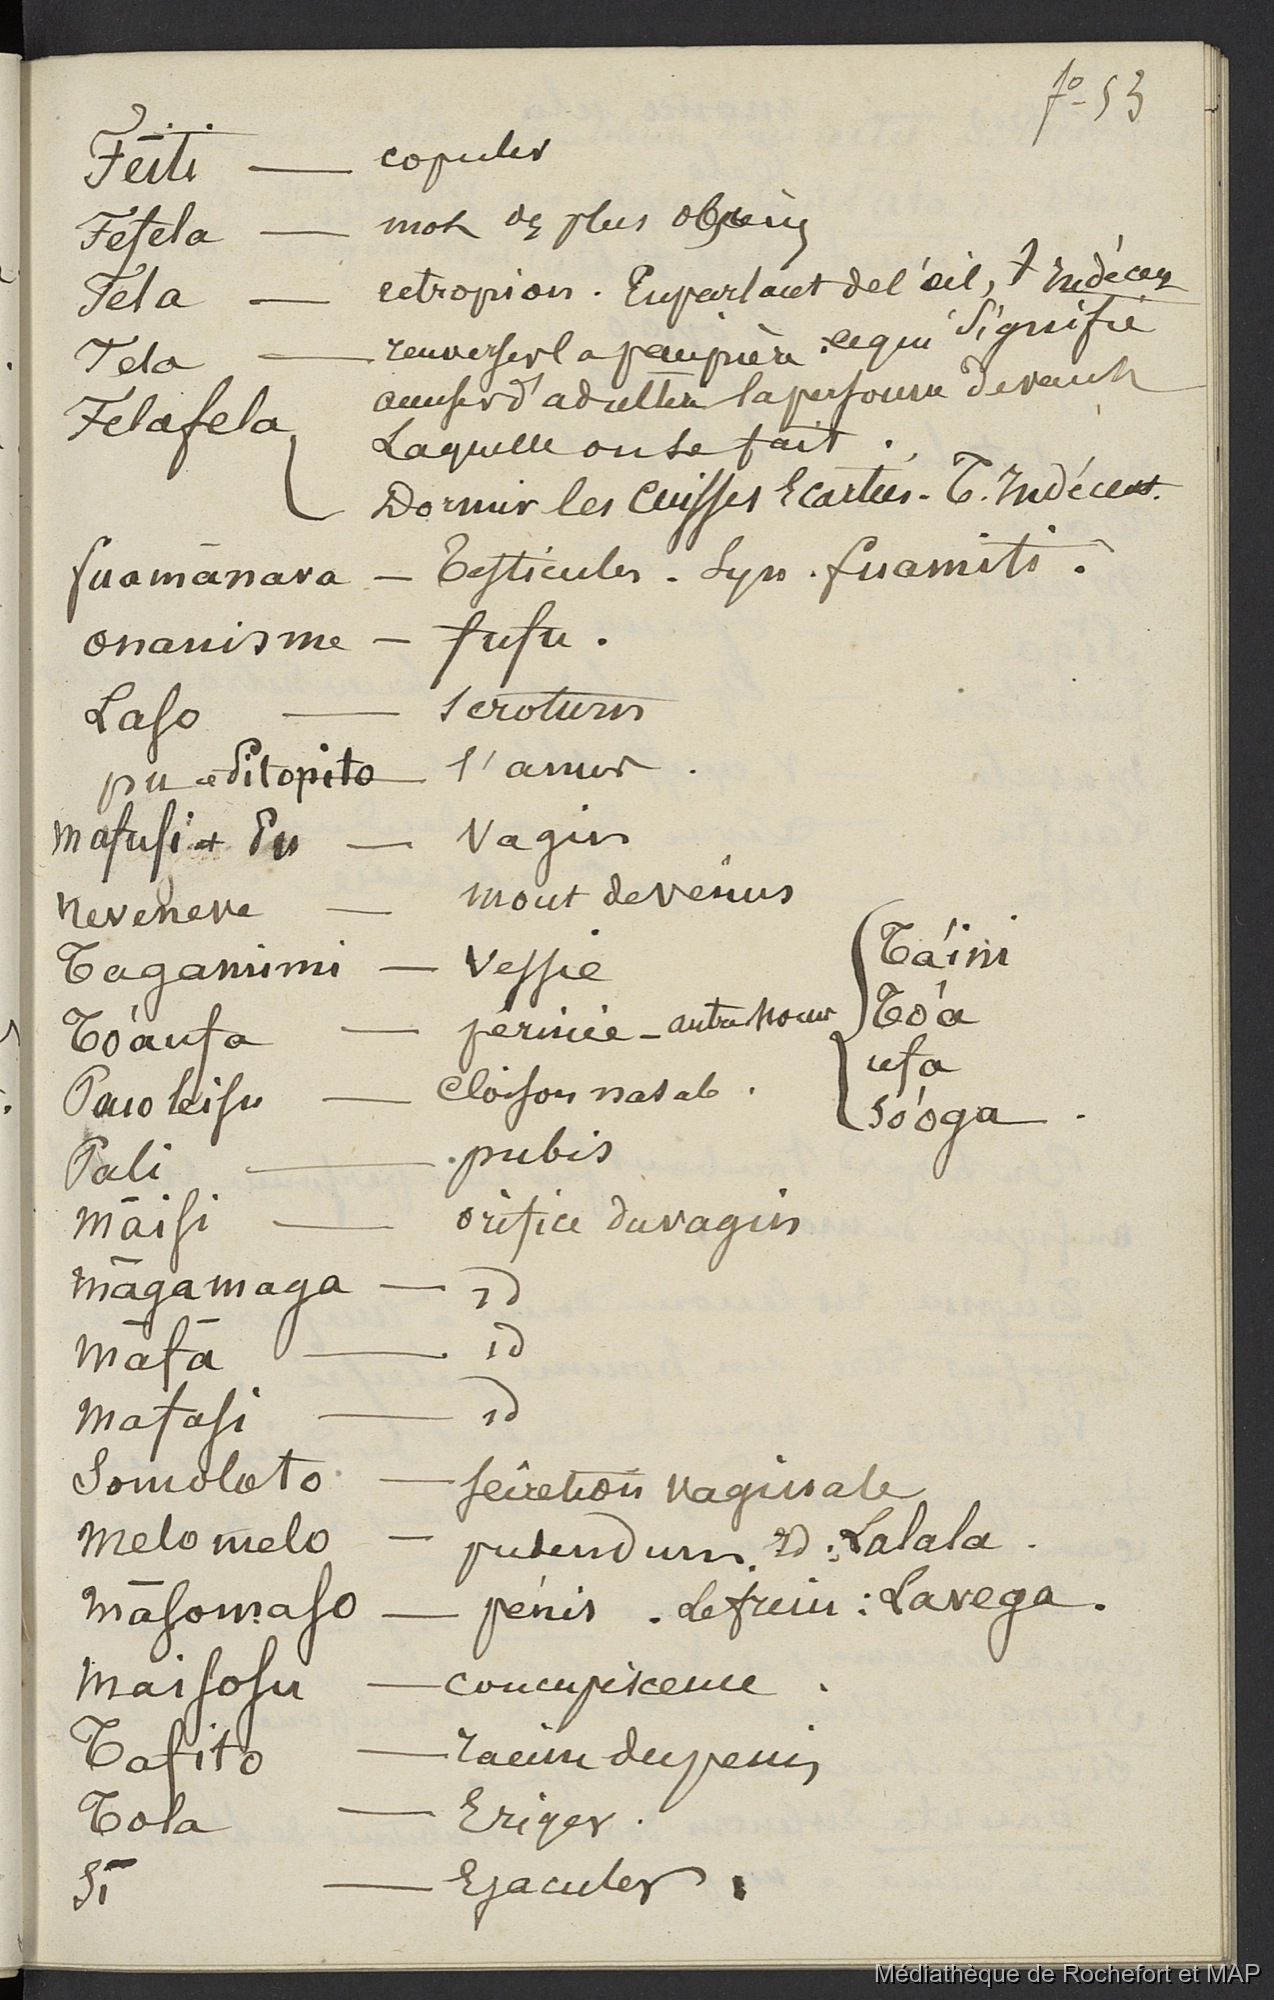 fo 53
Fēiti — copuler
Fefela — mot des plus obscènes
Fela — ectropion. En parlant de l'œil, T. Indécent
Fela — renverser la paupière. ce qui signifie
accuser d'adultère la personne devant
Felafela laquelle on se fait.
Dormir les cuisses Ecartées. T. Indécent.
fuamānava — Testicules. Syn. fuamiti.
onanisme — fufu.
Laso — scrotum
pu et Pitopito — l'anus.
Mafusi et Pu — Vagin
Neveneve — Mont de vénus
Tagamimi — Vessie
Tó'aufa — périnée — autres noms { Tá'ini
Tó'a
ufa
só'oga.
Pau o le isu — Cloison nasale.
Pali — pubis
Māisi — orifice du vagin
Māgamaga — id
Māfā — id
Mafasi — id
Somoloto — sécrétion vaginale
Melomelo — pudendum. id : Lalala.
Māsomaso — pénis. le frein : Lavega.
Maisosu — concupiscence.
Tafito — racine du penis
Tola — Eriger.
Sī — Ejaculer.
Médiathèque de Rochefort et MAP